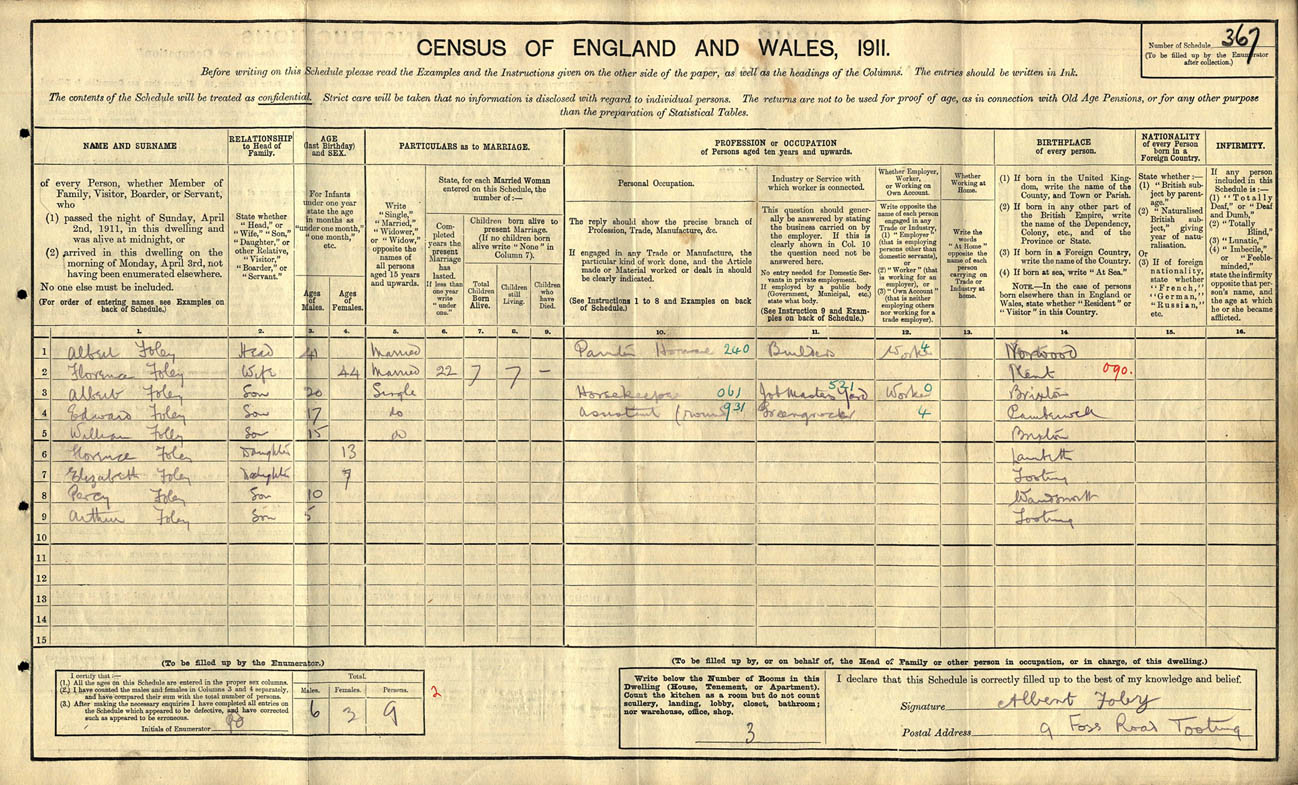 CENSUS OF ENGLAND AND WALES, 1911.
Number of Schedule 367
(To be filled up by the Enumerator
after collection.)
Before writing on this Schedule please read the Examples and the Instructions given on the other side of the paper, as well as the headings of the Columns. The entries should be written in Ink.
The contents of the Schedule will be treated as confidential. Strict care will be taken that no information is disclosed with regard to individual persons. The returns are not to be used for proof of age, as in connection with Old Age Pensions, or for any other purpose
than the preparation of Statistical Tables.
NAME AND SURNAME
of every Person, whether Member of
Family, Visitor, Boarder, or Servant,
who
(1) passed the night of Sunday, April
2nd, 1911, in this dwelling and
was alive at midnight, or
(2) arrived in this dwelling on the
morning of Monday, April 3rd, not
having been enumerated elsewhere.
No one else must be included.
(For order of entering names see Examples on
back of Schedule.)
RELATIONSHIP
to Head of
Family.
State whether
"Head," or
"Wife," "Son,"
"Daughter," or
other Relative,
"Visitor,"
"Boarder," or
"Servant."
AGE
(last Birthday)
and SEX.
For Infants
under one year
state the age
in months as
"under one month,"
"one month,"
etc.
Ages
of
Males.
Ages
of
Females.
PARTICULARS as to MARRIAGE.
Write
"Single,"
"Married,"
"Widower,"
or "Widow,"
opposite the
names of
all persons
aged 15 years
and upwards.
State, for each Married Woman
entered on this Schedule, the
number of :—
Com-
pleted
years the
present
Marriage
has
lasted.
If less than
one year
write
"under
one."
Children born alive to
present Marriage.
(If no children born
alive write "None" in
Column 7).
Total
Children
Born
Alive.
Children
still
Living.
Children
who
have
Died.
PROFESSION or OCCUPATION
of Persons aged ten years and upwards.
Personal Occupation.
The reply should show the precise branch of
Profession, Trade, Manufacture, &c.
If engaged in any Trade or Manufacture, the
particular kind of work done, and the Article
made or Material worked or dealt in should
be clearly indicated.
(See Instructions 1 to 8 and Examples on back
of Schedule.)
Industry or Service with
which worker is connected.
This question should gener-
ally be answered by stating
the business carried on by
the employer. If this is
clearly shown in Col. 10
the question need not be
answered here.
No entry needed for Domestic Ser-
vants in private employment.
If employed by a public body
(Government, Municipal, etc.)
state what body.
(See Instruction 9 and Exam-
ples on back of Schedule.)
Whether Employer,
Worker,
or Working on
Own Account.
Write opposite the
name of each person
engaged in any
Trade or Industry,
(1) "Employer"
(that is employing
persons other than
domestic servants),
or
(2) "Worker" (that
is working for an
employer), or
(3) "Own Account"
(that is neither
employing others
nor working for a
trade employer).
Whether
Working at
Home.
Write the
words
"At Home"
opposite the
name of each
person
carrying on
Trade or
Industry at
home.
BIRTHPLACE
of every person.
(1) If born in the United King-
dom, write the name of the
County, and Town or Parish.
(2) If born in any other part of
the British Empire, write
the name of the Dependency,
Colony, etc., and of the
Province or State.
(3) If born in a Foreign Country,
write the name of the Country.
(4) If born at sea, write "At Sea."
NOTE.—In the case of persons
born elsewhere than in England or
Wales, state whether "Resident" or
"Visitor" in this Country.
NATIONALITY
of every Person
born in a
Foreign Country.
State whether :—
(1) "British sub-
ject by parent-
age."
(2) "Naturalised
British sub-
ject," giving
year of natu-
ralisation.
Or
(3) If of foreign
nationality,
state whether
"French,"
"German,"
"Russian,"
etc.
INFIRMITY.
If any person
included in this
Schedule is :—
(1) "Totally
Deaf," or "Deaf
and Dumb,"
(2) "Totally
Blind,"
(3) "Lunatic,"
(4) "Imbecile,"
or "Feeble-
minded,"
state the infirmity
opposite that per-
son's name, and
the age at which
he or she became
afflicted.
1. 2. 3. 4. 5. 6. 7. 8. 9. 10. 11. 12. 13. 14. 15. 16.
1 Albert Foley Head 41 Married Painter House 240 Builders Worker 4 Norwood
2 Florence Foley Wife 44 Married 22 7 7 – Kent 090.
3 Albert Foley Son 20 Single Horsekeeper 061 Job Masters Yard 531 Worker 0 Brixton
4 Edward Foley Son 17 do Assistant 931 Greengrocer 4 Camberwell
5 William Foley Son 15 do Brixton
6 Florence Foley Daughter 13 Lambeth
7 Elizabeth Foley Daughter 7 Tooting
8 Percy Foley Son 10 Wandsworth
9 Arthur Foley Son 5 Tooting
10
11
12
13
14
15
(To be filled up by the Enumerator.)
I certify that :—
(1.) All the ages on this Schedule are entered in the proper sex columns.
(2.) I have counted the males and females in Columns 3 and 4 separately,
and have compared their sum with the total number of persons.
(3.) After making the necessary enquiries I have completed all entries on
the Schedule which appeared to be defective, and have corrected
such as appeared to be erroneous.
Initials of Enumerator
Total.
Males. Females. Persons.
6 3 9
2
(To be filled up by, or on behalf of, the Head of Family or other person in occupation, or in charge, of this dwelling.)
Write below the Number of Rooms in this
Dwelling (House, Tenement, or Apartment).
Count the kitchen as a room but do not count
scullery, landing, lobby, closet, bathroom;
nor warehouse, office, shop.
3
I declare that this Schedule is correctly filled up to the best of my knowledge and belief.
Signature Albert Foley
Postal Address 9 Foss Road Tooting